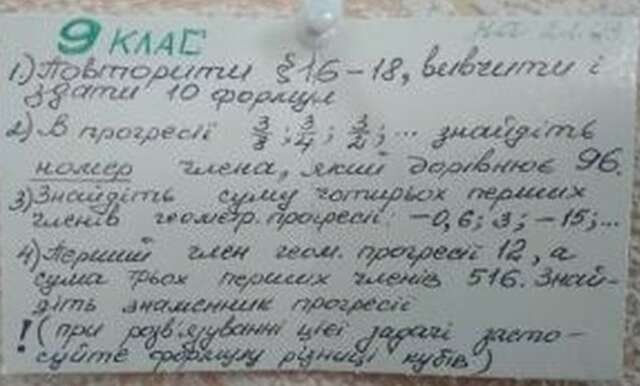 9 КЛАС на
1) Повторити § 16-18, вивчити і
здати 10 формул
2) В прогресії 3/8; 3/4; 3/2; ... знайдіть
номер члена, який дорівнює 96.
3) Знайдіть суму чотирьох перших
членів геометр. прогресії: -0,6; 3; -15; ...
4) Перший член геом. прогресії 12, а
сума трьох перших членів 516. Знай-
діть знаменник прогресії
! (при розв'язуванні цієї задачі засто-
суйте формулу різниці кубів)